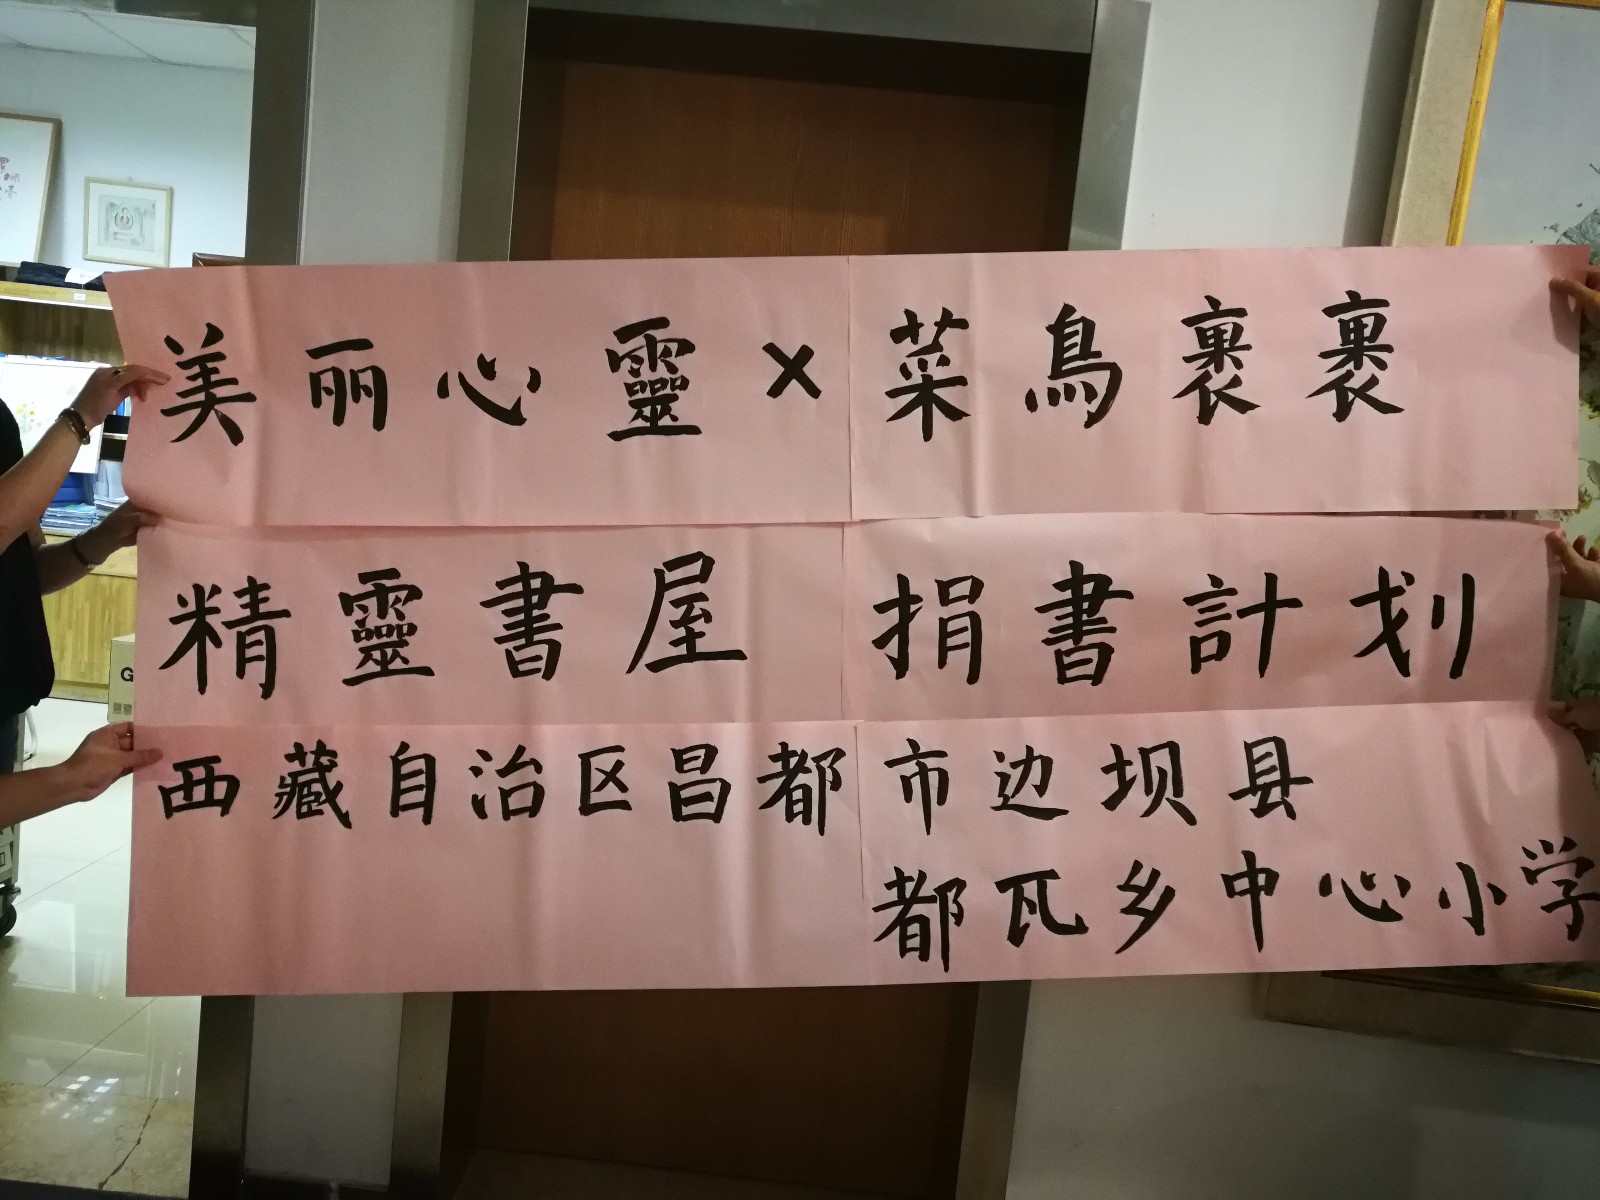 美丽心靈×菜鳥裹裹
精靈書屋 捐書計划
西藏自治区昌都市边坝县
都瓦乡中心小学
G